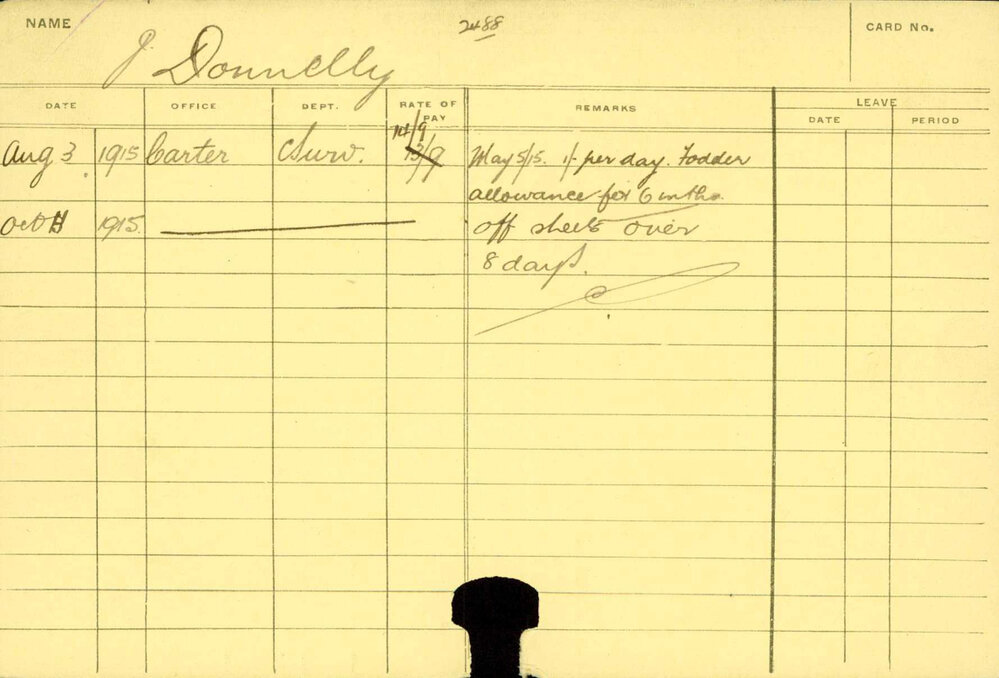 NAME
2488
CARD No.
J Donnelly
DATE OFFICE DEPT. RATE OF PAY REMARKS LEAVE
DATE PERIOD
14/9
Aug 3 1915 Carter Surv. 13/9 May 5/15. 1/- per day. Fodder
allowance for 6 mths.
Oct 1915. off sheets over
8 days.